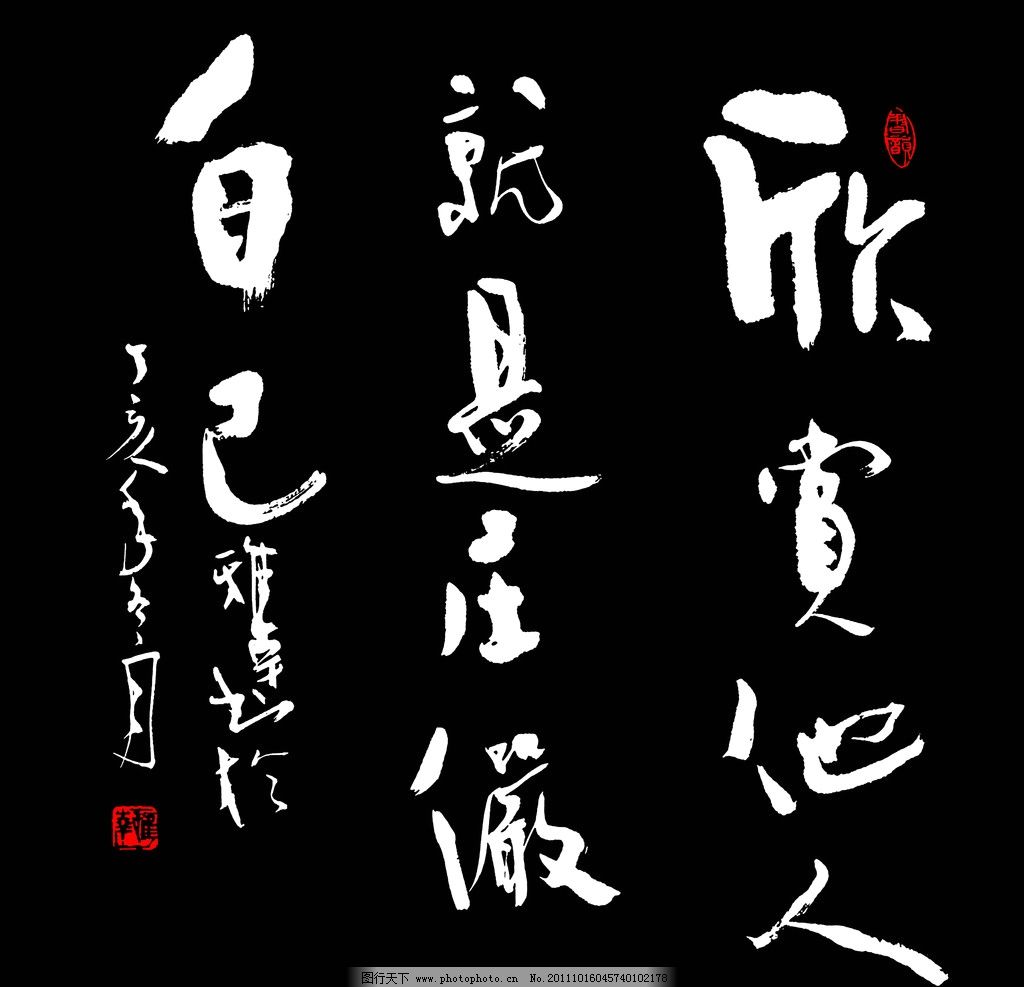 欣賞他人
就是庄儼
自己
書於
丁亥年冬月
图行天下 www.photophoto.cn No.20111016045740102178